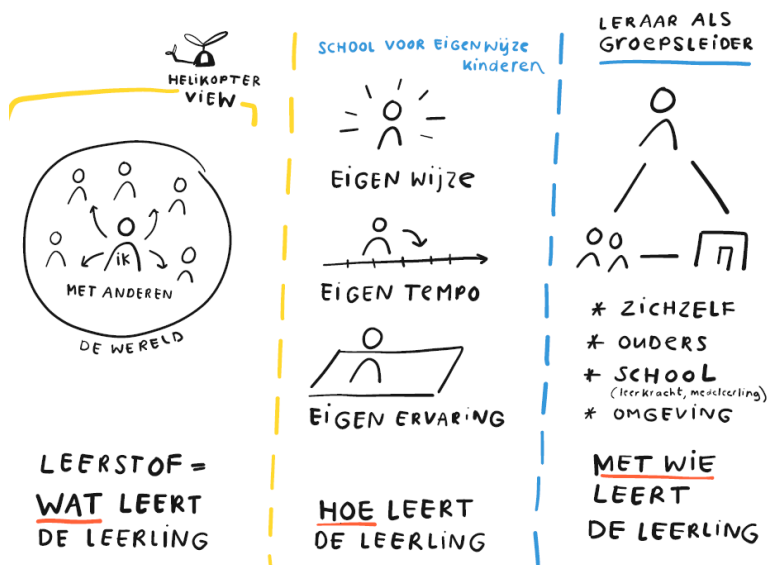 HELIKOPTER
VIEW
ik
MET ANDEREN
DE WERELD
LEERSTOF =
WAT LEERT
DE LEERLING
SCHOOL VOOR EIGENWIJZE
KINDEREN
EIGEN WIJZE
EIGEN TEMPO
EIGEN ERVARING
HOE LEERT
DE LEERLING
LERAAR ALS
GROEPSLEIDER
* ZICHZELF
* OUDERS
* SCHOOL
(leerkracht, medeleerling)
* OMGEVING
MET WIE
LEERT
DE LEERLING